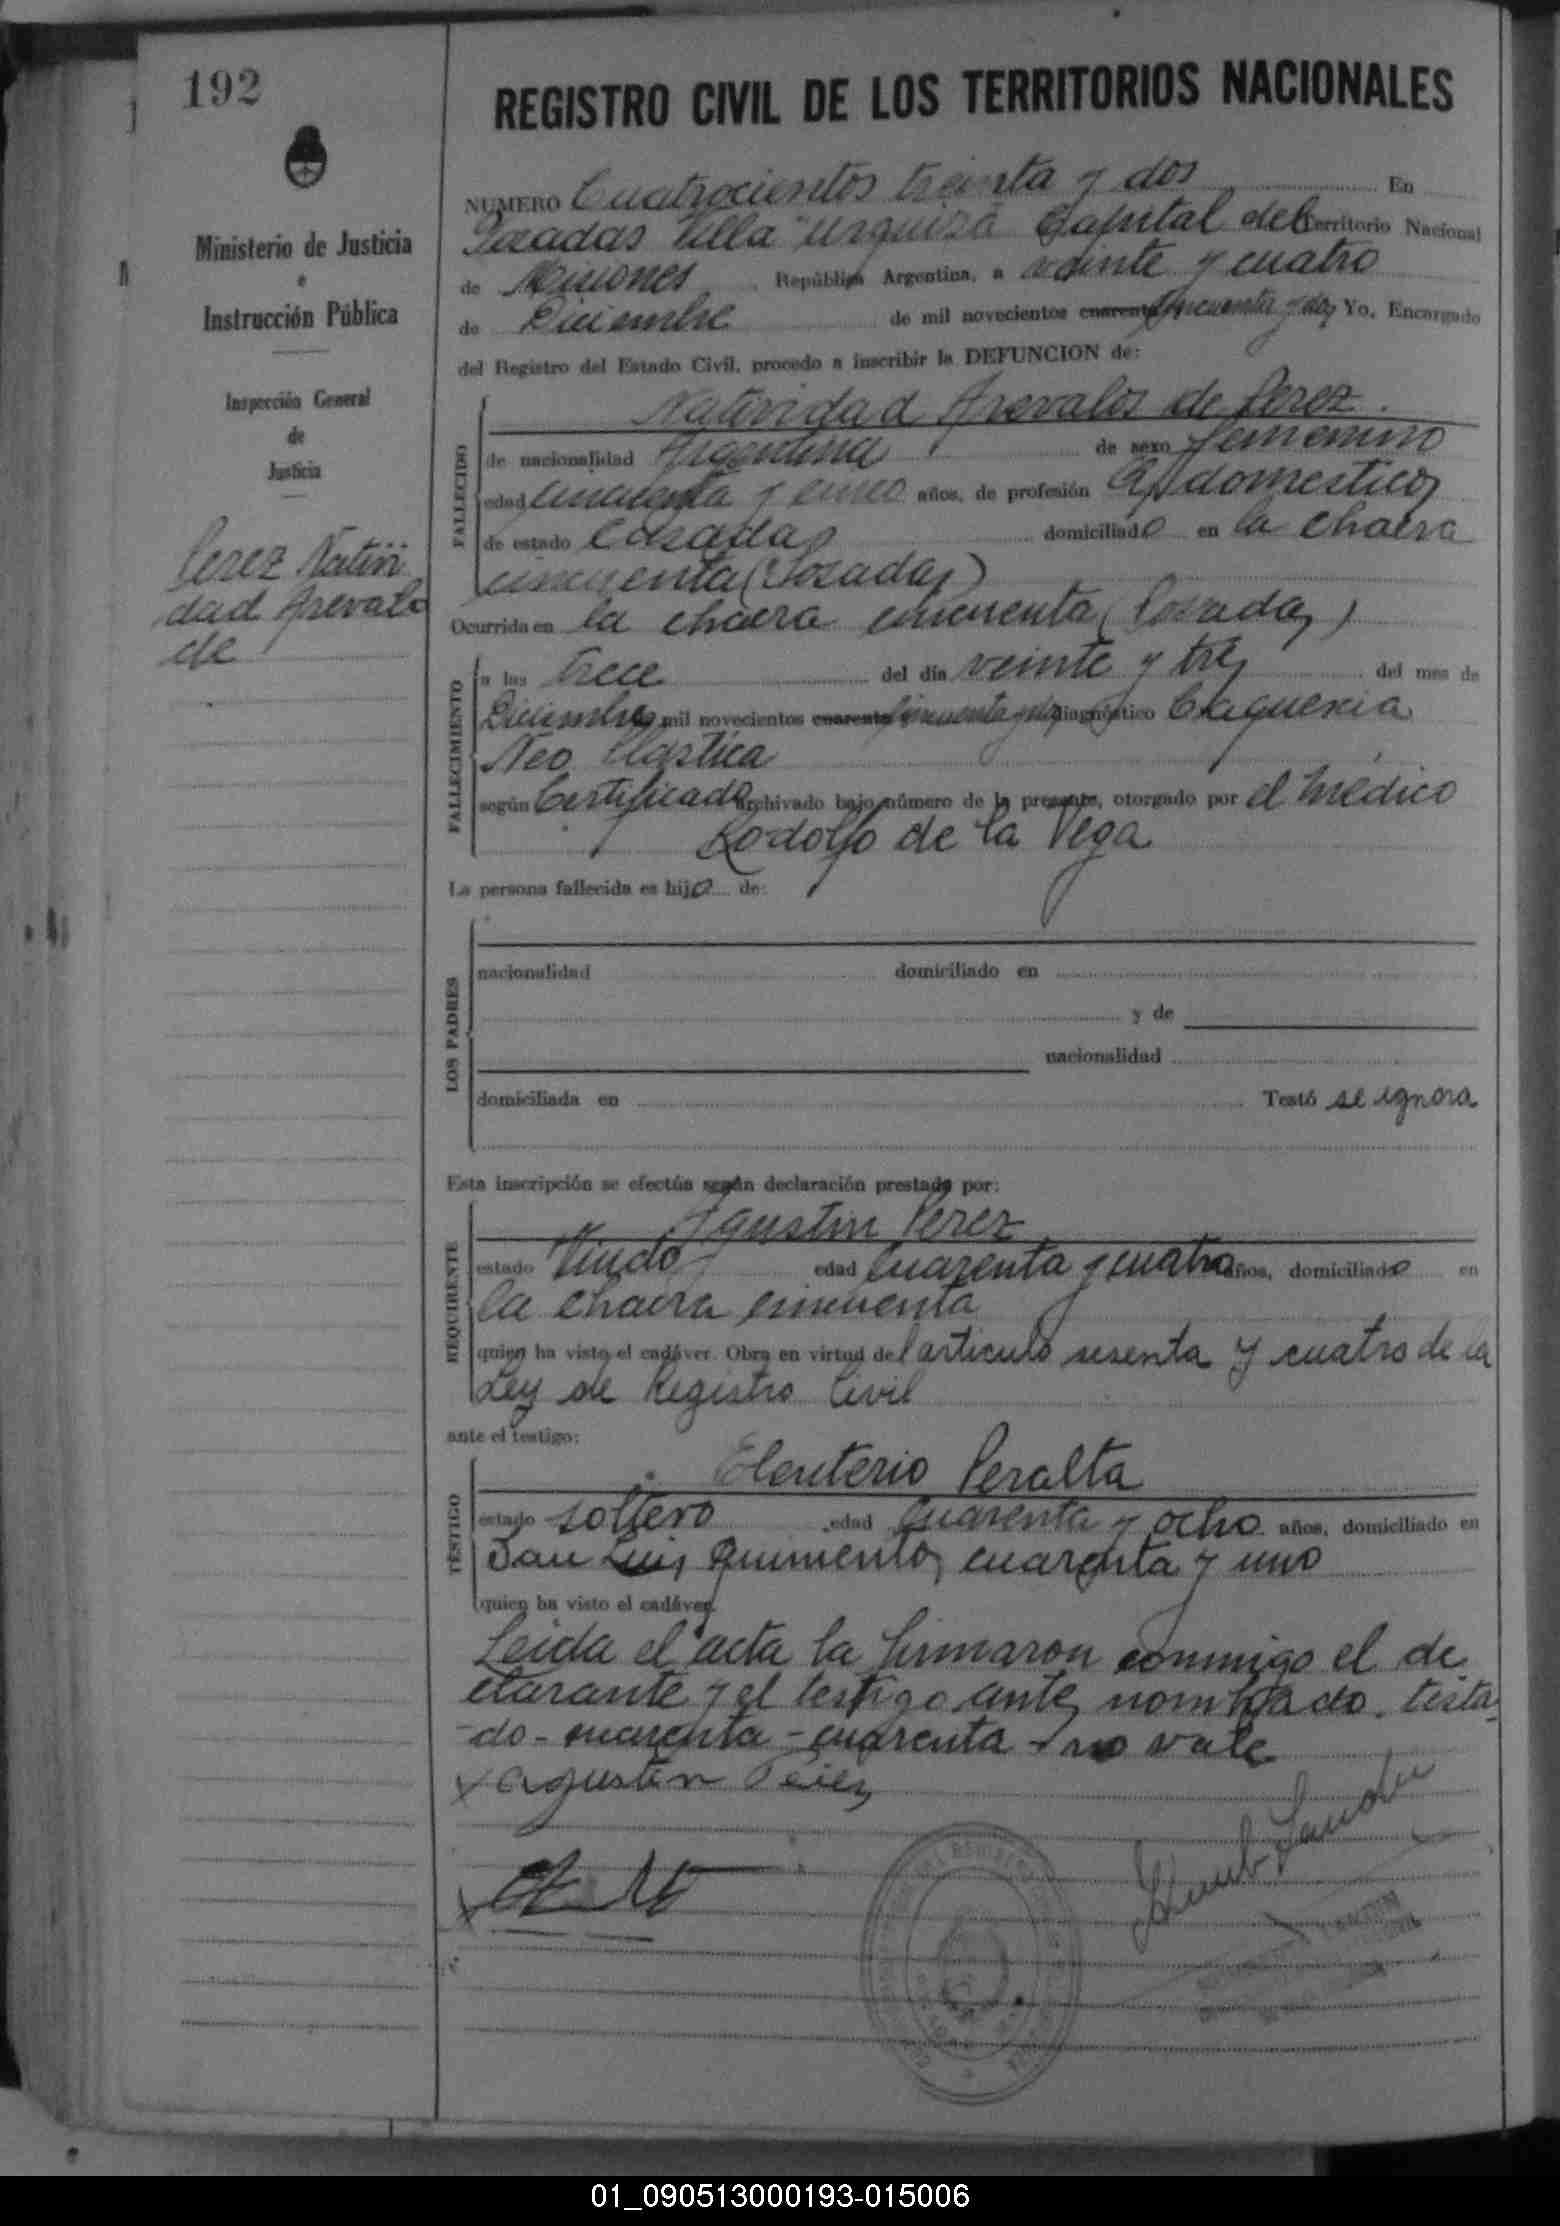 192
Ministerio de Justicia
e
Instrucción Pública
Inspección General
de
Justicia
Perez Nativi
dad Arevalo
de
REGISTRO CIVIL DE LOS TERRITORIOS NACIONALES
NUMERO Cuatrocientos treinta y dos En
Posadas Villa "Urquiza" Capital del Territorio Nacional
de Misiones, República Argentina, a veinte y cuatro
de Diciembre de mil novecientos cuarenta cincuenta y dos Yo, Encargado
del Registro del Estado Civil, procedo a inscribir la DEFUNCION de:
FALLECIDO
Natividad Arevalos de Perez.
de nacionalidad Argentina de sexo femenino
edad cincuenta y cinco años, de profesión Q/ domesticos
de estado Casada domiciliada en la chacra
cincuenta (Posadas)
Ocurrida en la chacra cincuenta (Posadas)
FALLECIMIENTO
a las trece del día veinte y tres del mes de
Diciembre mil novecientos cuarenta cincuenta y dos diagnóstico Caquexia
Neo Plastica
según Certificado archivado bajo número de la presente, otorgado por el médico
Rodolfo de la Vega
La persona fallecida es hija de:
LOS PADRES
nacionalidad domiciliado en
y de
nacionalidad
domiciliada en Testó se ignora
Esta inscripción se efectúa según declaración prestada por:
REQUIRENTE
Agustin Perez
estado Viudo edad cuarenta y cuatro años, domiciliado en
la chacra cincuenta
quien ha visto el cadáver. Obra en virtud del articulo sesenta y cuatro de la
Ley de Registro Civil
ante el testigo:
TESTIGO
Eleuterio Peralta
estado soltero edad cuarenta y ocho años, domiciliado en
San Luis quinientos cuarenta y uno
quien ha visto el cadáver.
Leida el acta la firmaron conmigo el de
clarante y el testigo antes nombrado. testa
-do - cuarenta - cuarenta - no vale
x Agustin Perez
01_090513000193-015006